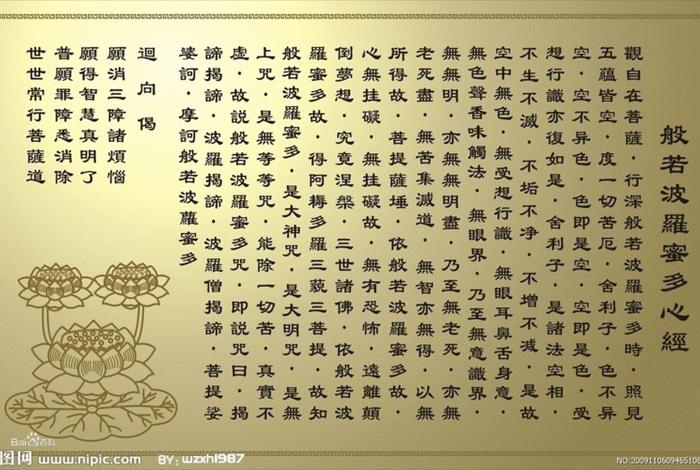 般若波羅蜜多心經
觀自在菩薩·行深般若波羅蜜多時·照見
五蘊皆空·度一切苦厄·舍利子·色不异
空·空不异色·色即是空·空即是色·受
想行識亦復如是·舍利子·是諸法空相·
不生不滅·不垢不净·不增不减·是故
空中無色·無受想行識·無眼耳鼻舌身意·
無色聲香味觸法·無眼界·乃至無意識界·
無無明·亦無無明盡·乃至無老死·亦無
老死盡·無苦集滅道·無智亦無得·以無
所得故·菩提薩埵·依般若波羅蜜多故·
心無挂礙·無挂礙故·無有恐怖·遠離顛
倒夢想·究竟涅槃·三世諸佛·依般若波
羅蜜多故·得阿耨多羅三藐三菩提·故知
般若波羅蜜多·是大神咒·是大明咒·是無
上咒·是無等等咒·能除一切苦·真實不
虛·故説般若波羅蜜多咒·即説咒曰·揭
諦揭諦·波羅揭諦·波羅僧揭諦·菩提娑
婆訶·摩訶般若波羅蜜多
迴向偈
願消三障諸煩惱
願得智慧真明了
普願罪障悉消除
世世常行菩薩道
Bai百科
图网 www.nipic.com BY: wzxh1987
NO:2009110609465108